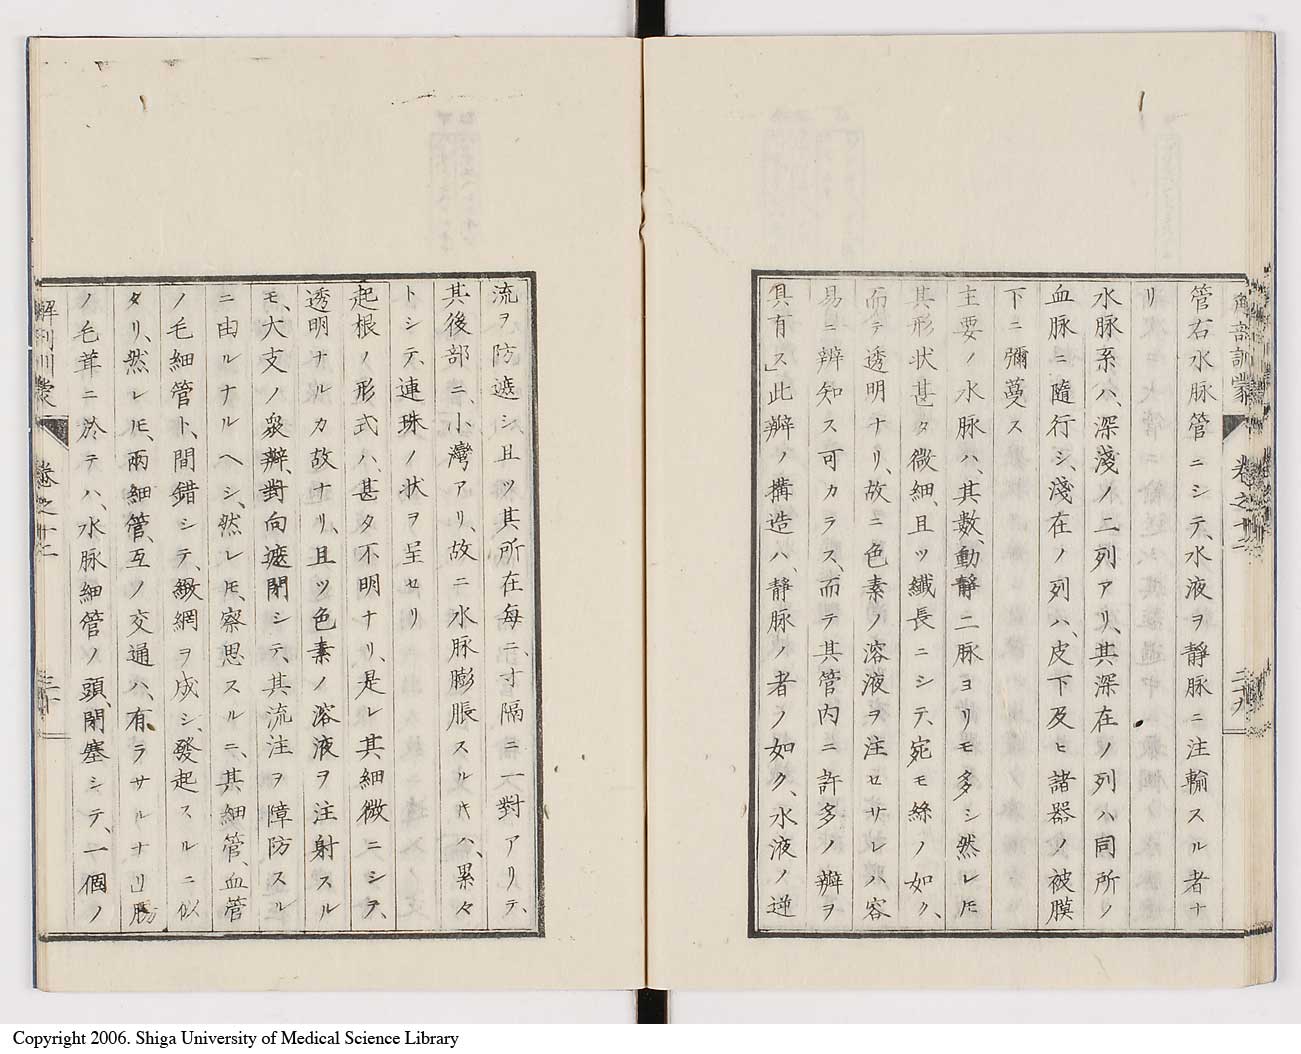 管右水脉管ニシテ、水液ヲ靜脉ニ注輸スル者ナ
リ
水脉系ハ、深淺ノ二列アリ、其深在ノ列ハ同所ノ
血脉ニ隨行シ、淺在ノ列ハ、皮下及ヒ諸器ノ被膜
下ニ彌蔓ス
主要ノ水脉ハ、其數、動靜二脉ヨリモ多シ然レ𪜈
其形状甚タ微細、且ツ纖長ニシテ、宛モ絲ノ如ク、
而テ透明ナリ、故ニ色素ノ溶液ヲ注セサレハ容
易ニ辨知ス可カラス、而テ其管内ニ許多ノ瓣ヲ
具有ス」此瓣ノ搆造ハ、靜脉ノ者ノ如ク、水液ノ逆
流ヲ防遮シ且ツ其所在每ニ、寸隔ニ一對アリテ、
其後部ニ、小灣アリ、故ニ水脉膨脹スル𬼀ハ、累々
トシテ、連珠ノ状ヲ呈セリ
起根ノ形式ハ、甚タ不明ナリ、是レ其細微ニシテ、
透明ナルカ故ナリ、且ツ色素ノ溶液ヲ注射スル
モ、大支ノ衆瓣、對向遮閉シテ、其流注ヲ障防スル
ニ由ルナルヘシ、然レ𪜈、察思スルニ、其細管、血管
ノ毛細管ト、間錯シテ、緻網ヲ成シ、發起スルニ似
タリ、然レ𪜈、兩細管、互ノ交通ハ、有ラサルナリ」膓
ノ毛茸ニ於テハ、水脉細管ノ頭、閉塞シテ、一個ノ
解剖訓蒙
卷之十二
三十
Copyright 2006. Shiga University of Medical Science Library